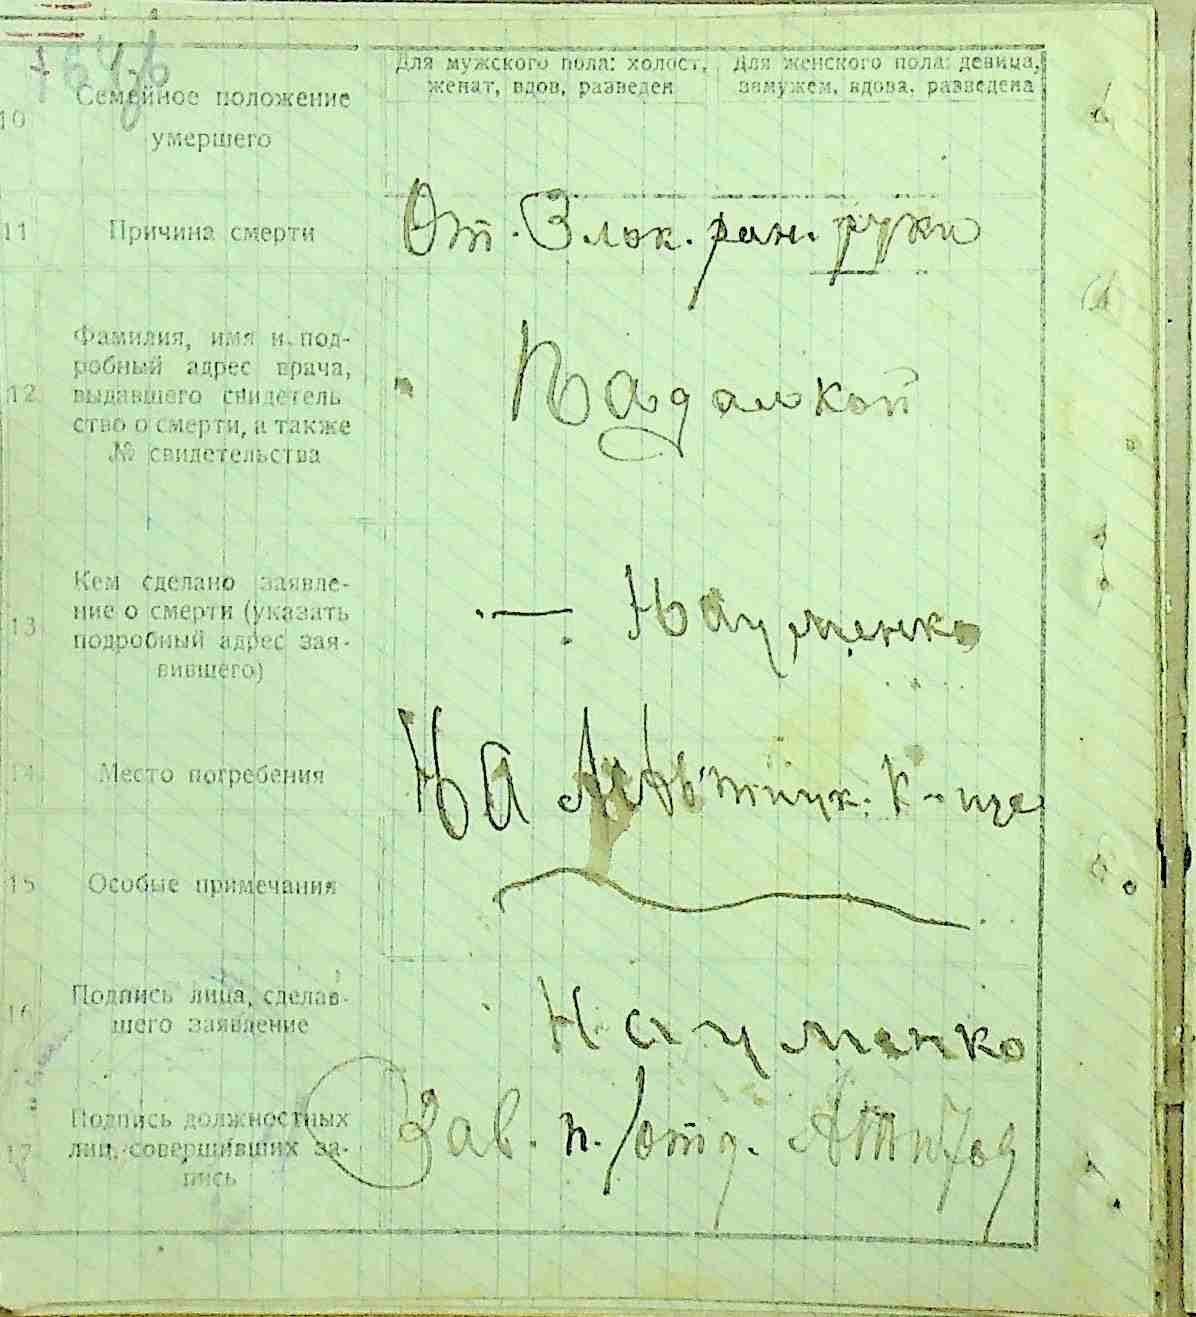 Для мужского пола: холост, женат, вдов, разведен
Для женского пола: девица, замужем, вдова, разведена
10
Семейное положение
умершего
11
Причина смерти
От. Злок. ран. руки
12
Фамилия, имя и под-
робный адрес врача,
выдавшего свидетель
ство о смерти, а также
№ свидетельства
Падалкой
13
Кем сделано заявле-
ние о смерти (указать
подробный адрес зая-
вившего)
— Науменко
14
Место погребения
На К-ще
15
Особые примечания
16
Подпись лица, сделав-
шего заявление
Науменко
17
Подпись должностных
лиц, совершивших за-
пись
Зав. п/отд.